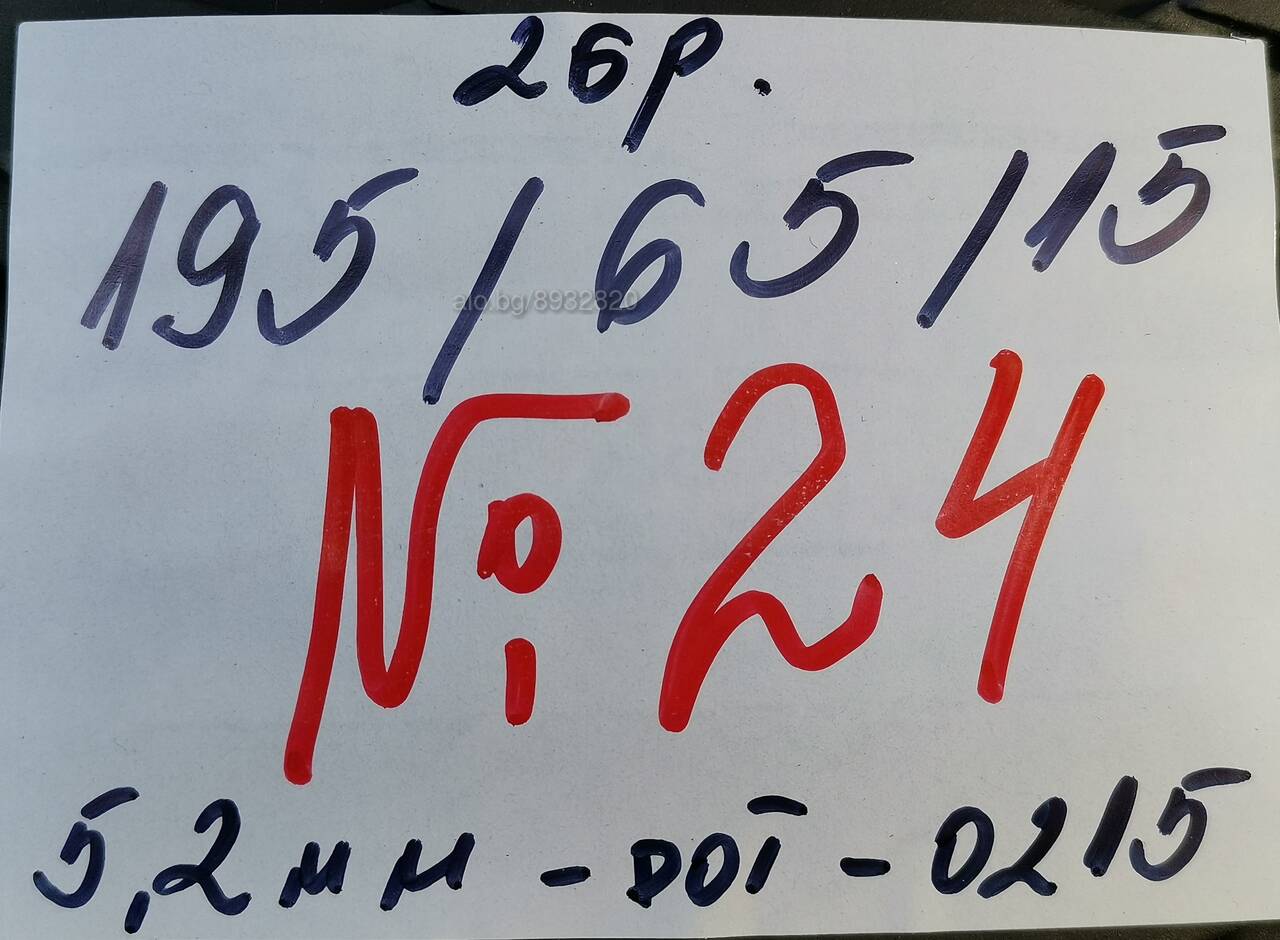 2бр.
195/65/15
alo.bg/8932820
№ 24
5,2мм - DOT - 0215